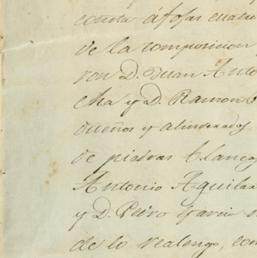 consta á fojas cuatro
de la composicion
ron D. Juan Anto
cha y D. Ramon
dueños y alindados
de piedras blancas
Antonio Aguilar
y D. Pedro Garcia
de lo realengo, con